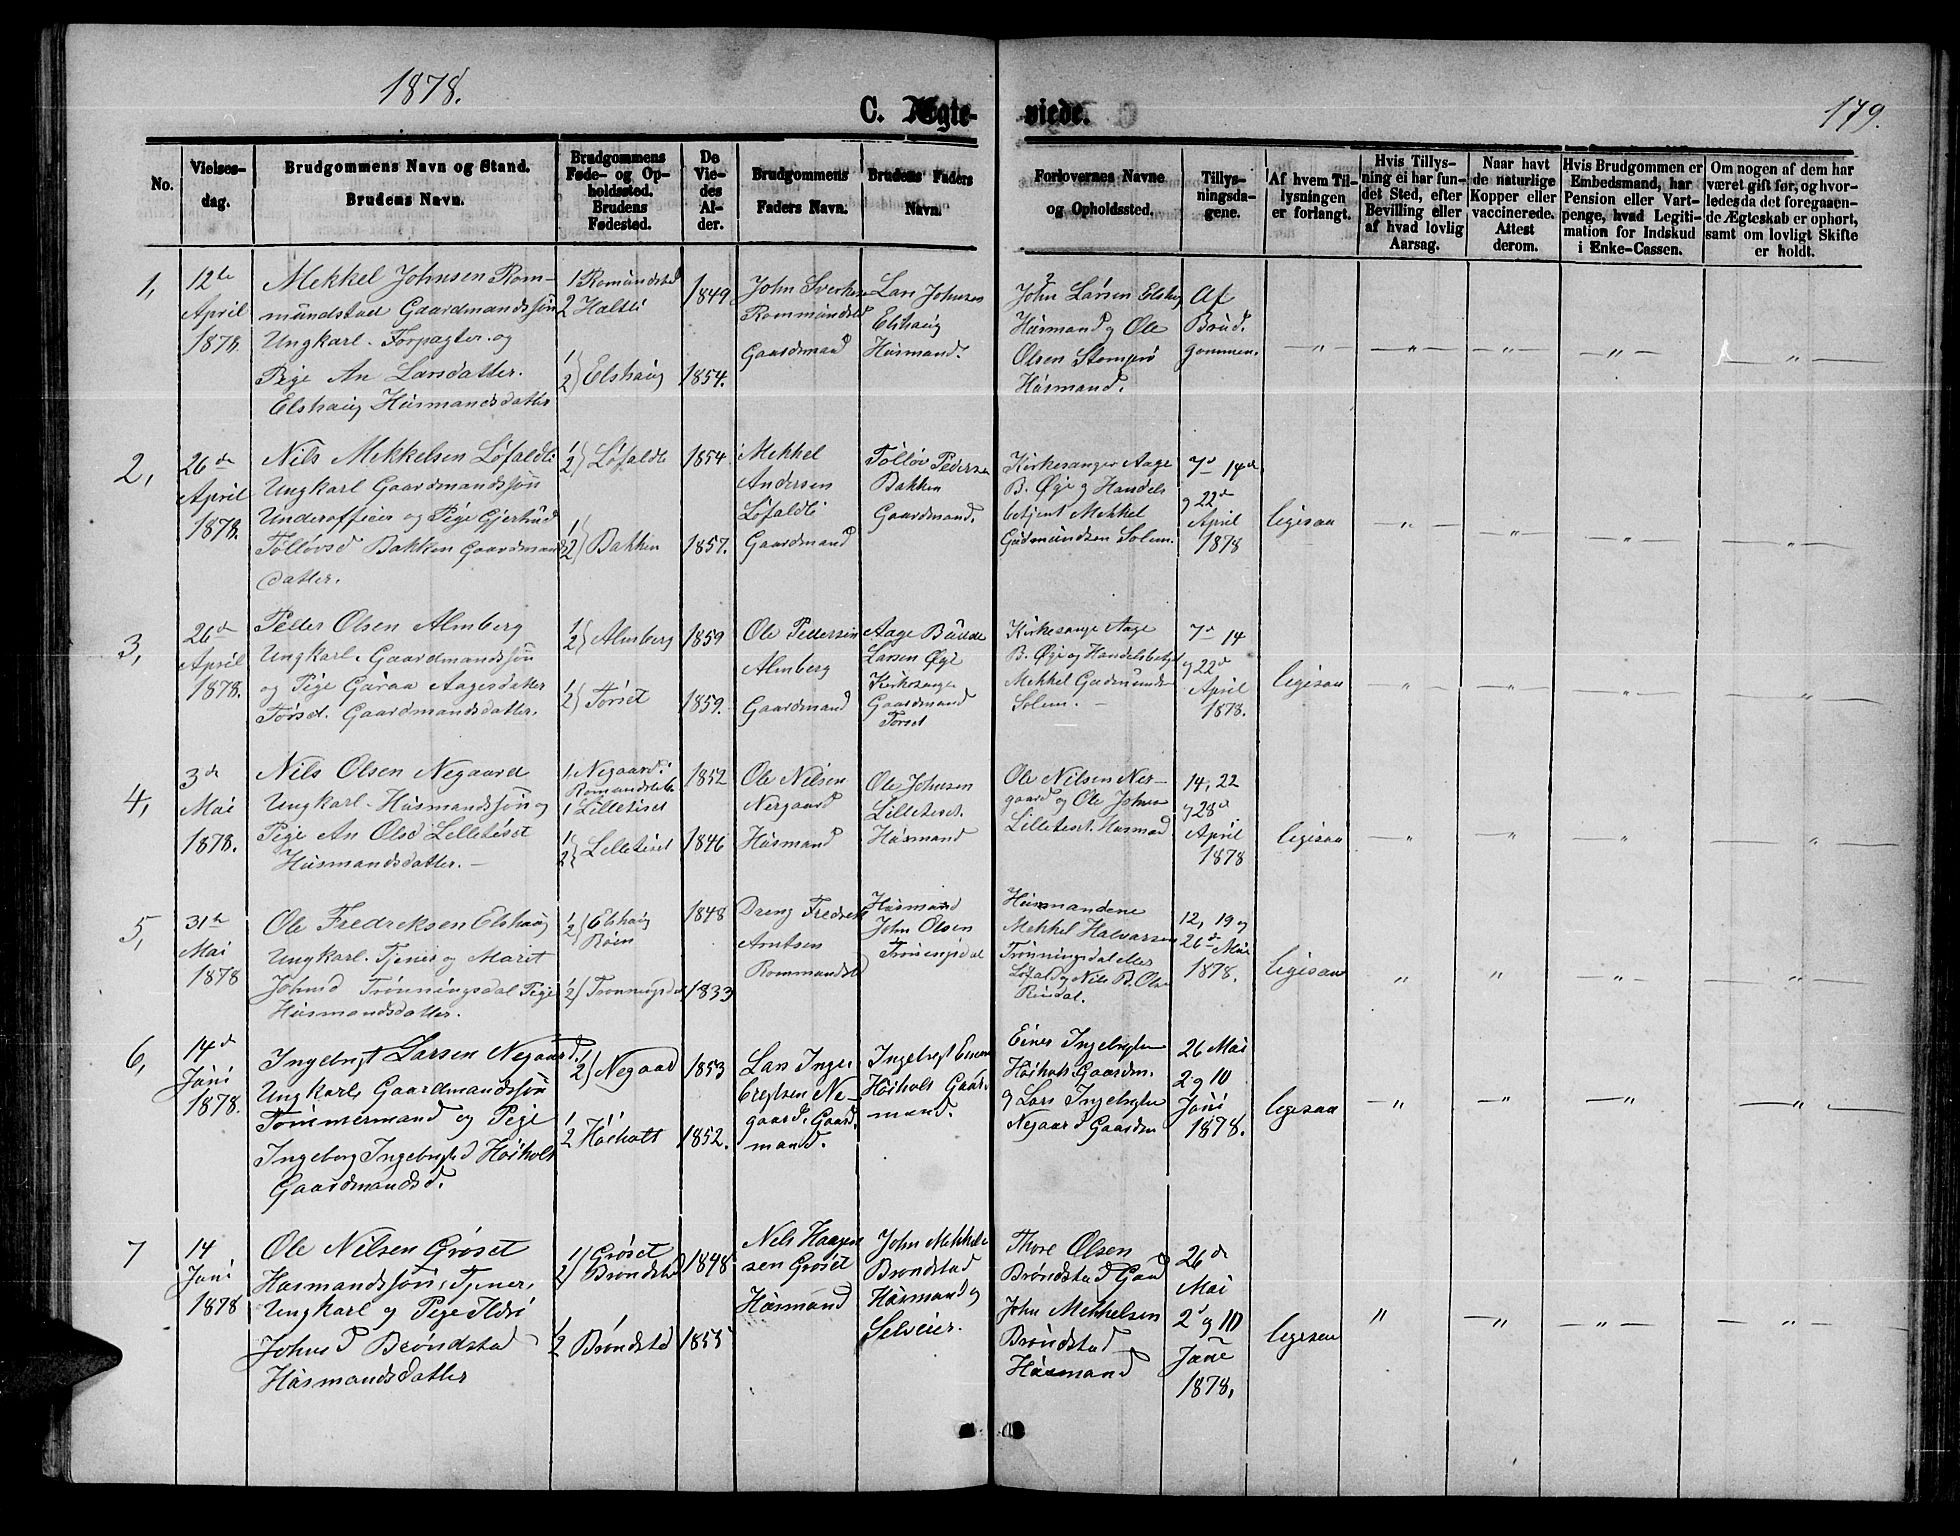 1878.
C. Ægte-
viede.
179.
No.
Vielses-
dag.
Brudgommens Navn og Stand.
Brudens Navn.
Brudgommens
Føde- og Op-
holdssted.
Brudens
Fødested.
De
Vie-
des
Al-
der.
Brudgommens
Faders Navn.
Brudens Faders
Navn.
Forlovernes Navne
og Opholdssted.
Tillys-
ningsda-
gene.
Af hvem Til-
lysningen
er forlangt.
Hvis Tillys-
ning ei har fun-
det Sted, efter
Bevilling eller
af hvad lovlig
Aarsag.
Naar havt
de naturlige
Kopper eller
vaccinerede.
Attest
derom.
Hvis Brudgommen er
Embedsmand, har
Pension eller Vart-
penge, hvad Legiti-
mation for Indskud
i Enke-Cassen.
Om nogen af dem har
været gift før, og hvor-
ledes da det foregaaen-
de Ægteskab er ophørt,
samt om lovligt Skifte
er holdt.
1,
12te
April
1878.
Mekkel Johnsen Rom-
mundstad Gaardmandssøn
Ungkarl. Forpagter og
Pige An Larsdatter.
Elshaug Husmandsdatter
1 Romundstad
2 Halsli
1/2) Elshaug
1849
1854.
John Sverkesen
Rommundstad
Gaardmand
Lars Johnsen
Elshaug
Husmand.
John Larsen Elshaug
Husmand og Ole
Olsen Stomprø
Husmand.
Af
Brud-
gommen.
— " —
— " —
— " —
— " —
— " —
2,
26de
April
1878.
Nils Mekkelsen Løfaldli
Ungkarl Gaardmandssøn
Underofficer og Pige Gjertrud
Tølløvsd Bakken Gaardmands-
datter.
1/2) Løfaldli
1/2) Bakken
1854.
1857.
Mekkel
Andersen
Løfaldli
Gaardmand
Tølløv Pedersen
Bakken
Gaardmand.
Kirkesanger Aage
B. Øye og Handels
betjent Mekkel
Gudmundsen Solem.
7de 14de
og 22de
April
1878
ligesaa
— " —
— " —
— " —
— " —
3,
26de
April
1878.
Peder Olsen Almberg
Ungkarl. Gaardmandssøn
og Pige Guraa Aagesdatter
Torset. Gaardmandsdatter.
1/2) Almberg
1/2) Torset
1859
1859.
Ole Pedersen
Almberg
Gaardmand
Aage Baarde
Larsen Øye
Kirkesanger
Gaardmand
Torset
Kirkesange Aage
B. Øye og Handelsbetjent
Mekkel Gudmunds
Solem. —
7de 14
og 22de
April
1878.
ligesaa
— " —
— " —
— " —
— " —
4,
3de
Mai
1878.
Nils Olsen Negaard
Ungkarl. Husmandssøn og
Pige An Olsd Lilletiset
Husmandsdatter. —
1 Negaard.
1 Lilletiset
1/2) Lilletiset
1852
1846
Ole Nilsen
Nergaard
Husmand
Ole Johnsen
Lilletiset.
Husmand
Ole Nilsen Ner-
gaard og Ole Johnse
Lilletiset. Husmand
14, 22
og 28de
April
1878
ligesaa
— " —
"
— " —
— " —
5,
31te
Mai
1878
Ole Fredreksen Elshaug
Ungkarl. Tjener og Marit
Johnsd Trønningsdal Pige
Husmandsdatter.
1/2) Elshaug
Bøen
1/2) Trønningsdal
1848
1833
Dreng Fredrek
Arntsen
Rommundstad
Husmand
John Olsen
Trønningsdal
Husmandene
Mekkel Halvorsen
Trønningsdal eller
Løfald og Nils B. Olsen
Rindal.
12, 19 og
26de Mai
1878.
ligesaa
"
"
— " —
— " —
6,
14de
Juni
1878.
Ingebrigt Larsen Negaard.
Ungkarl Gaardmandssøn
Tømmermand og Pige
Ingeborg Ingebrigtsd Høiholt
Gaardmandsd.
1/2) Negaard
1/2 Høiholt
1853
1852.
Lars Inge-
brigtsen Ne-
gaard. Gaard-
mand.
Ingebrigt Einersen
Høiholt Gaard-
mand.
Einer Ingebrigtsen
Høiholt Gaardm.
og Lars Ingebrigtsen
Negaard Gaardm
26 Mai
2 og 10
Juni
1878.
ligesaa
— " —
— " —
— " —
— " —
7
14
Juni
1878
Ole Nilsen Grøset
Husmandssøn, Tjener,
Ungkarl og Pige Ildri
Johnsd Brøndstad
Husmandsdatter
1/2) Grøset
Brøndstad
1/2 Brøndstad
1848
1855
Nels Haagen-
sen Grøset
Husmand
John Mekkels
Brøndstad
Husmand og
Selveier.
Thore Olsen
Brøndstad Gaard
John Mekkelsen
Brøndstad
Husmand
26de
Mai
2de og 10
June
1878,
ligesaa
"
— " —
— " —
— " —